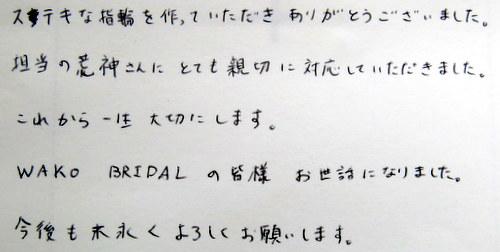 ステキな指輪を作っていただき ありがとうございました。
担当の荒神さんに とても親切に対応していただきました。
これから 一生 大切にします。
WAKO BRIDAL の皆様 お世話になりました。
今後も末永くよろしくお願いします。